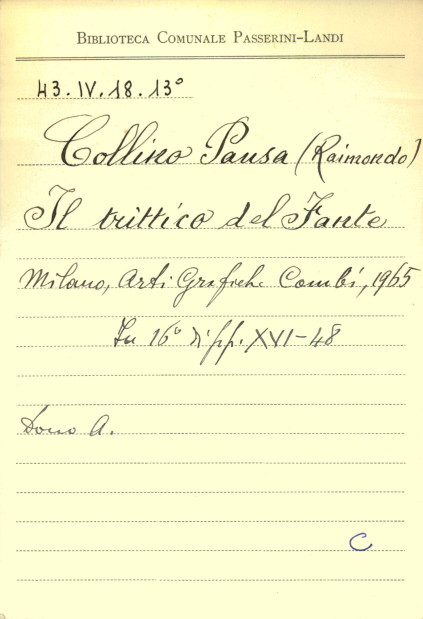 BIBLIOTECA COMUNALE PASSERINI-LANDI
43.IV.18.13°
Collino Pansa (Raimondo)
Il trittico del Fante
Milano, Arti Grafiche Combi, 1965
In 16° di pp. XVI-48
Dono A.
C